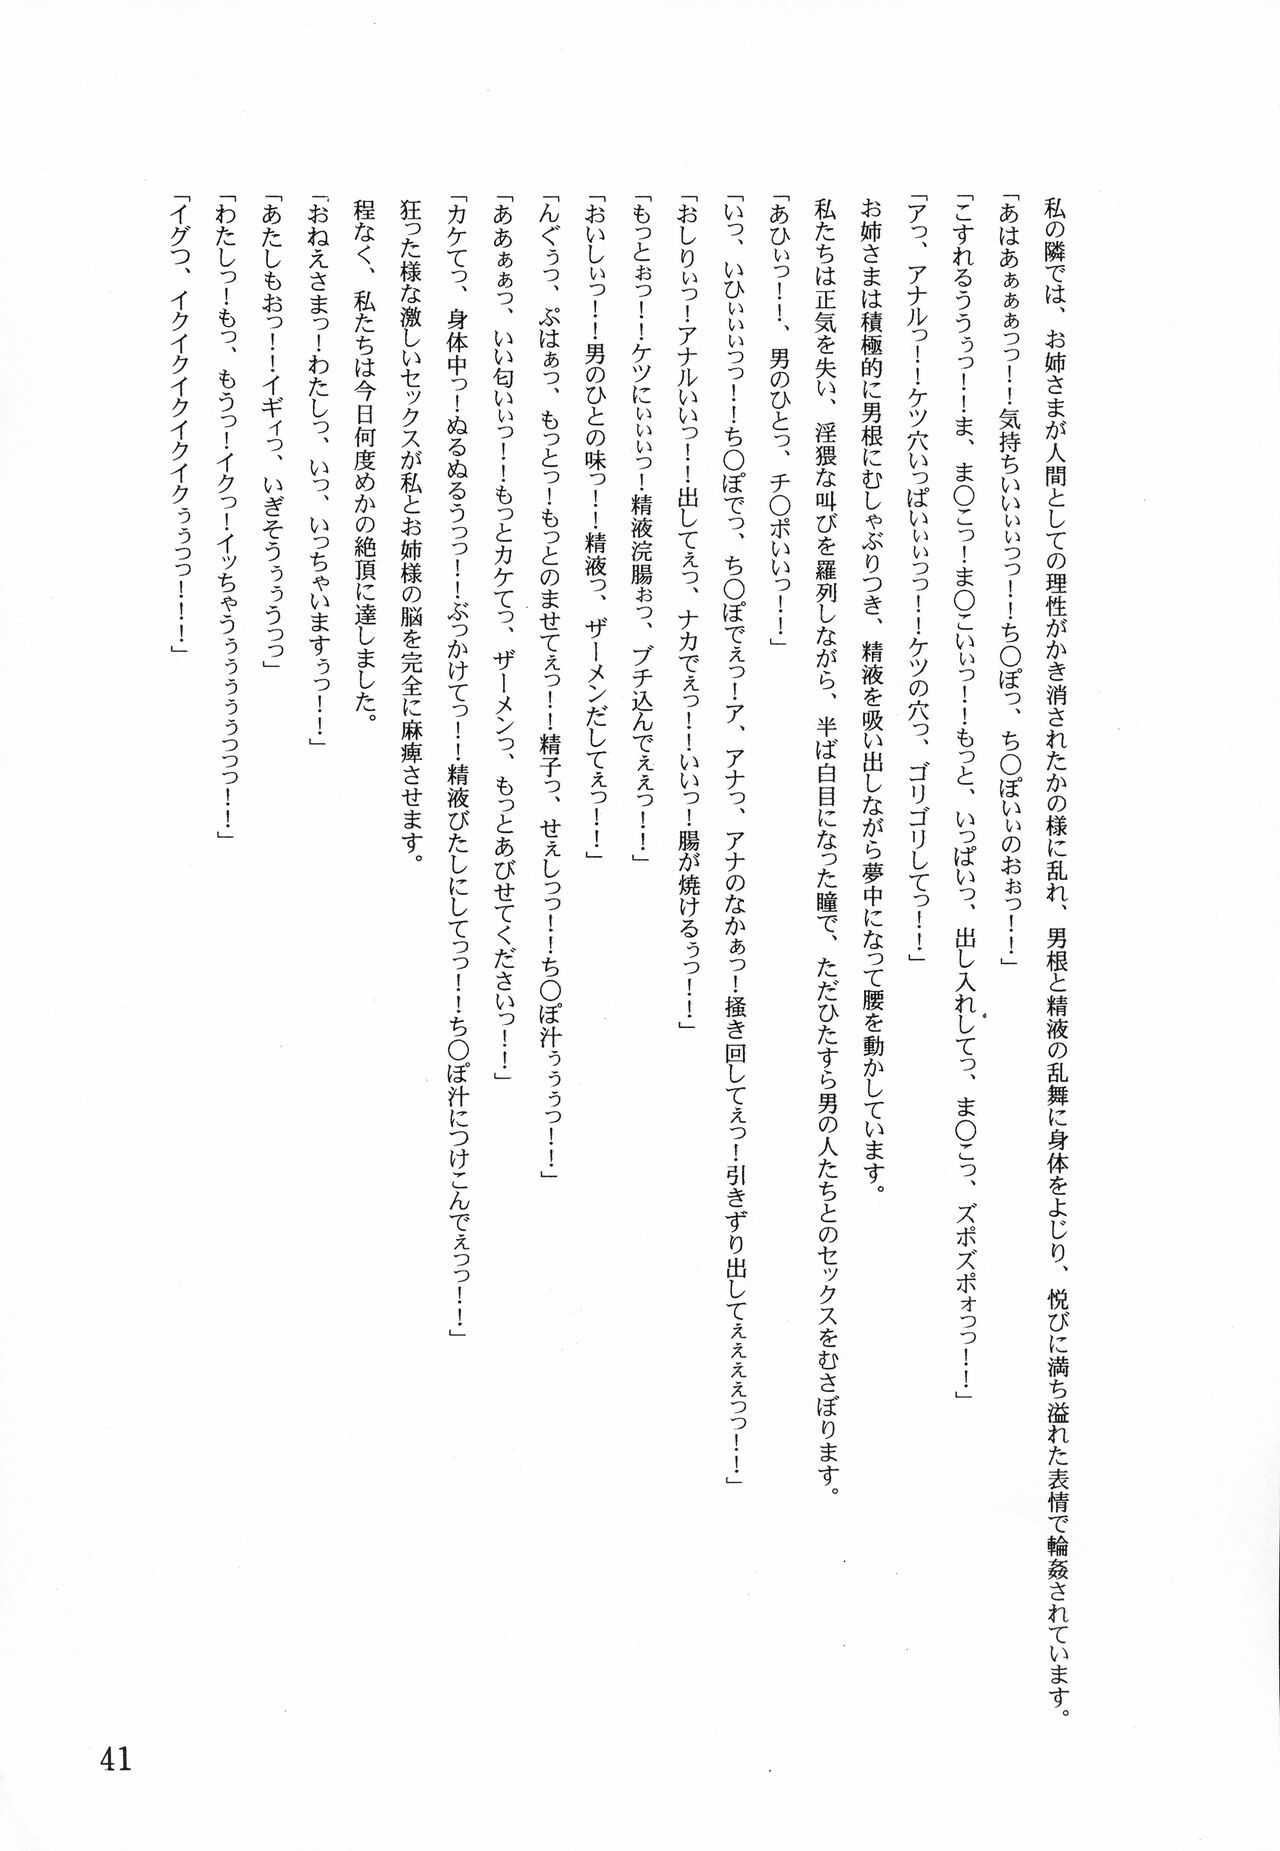 私の隣では、お姉さまが人間としての理性がかき消されたかの様に乱れ、男根と精液の乱舞に身体をよじり、悦びに満ち溢れた表情で輪姦されています。
「あはあぁぁぁっっ！！気持ちいいぃぃっっ！！ち○ぽっ、ち○ぽいぃのおぉっ！！」
「こすれるううぅっ！！ま、ま○こっ！ま○こいぃっ！！もっと、いっぱいっ、出し入れしてっ、ま○こっ、ズポズポォっっ！！」
「アっ、アナルっ！！ケツ穴いっぱいぃぃっっ！！ケツの穴っ、ゴリゴリしてっ！！」
お姉さまは積極的に男根にむしゃぶりつき、精液を吸い出しながら夢中になって腰を動かしています。
私たちは正気を失い、淫猥な叫びを羅列しながら、半ば白目になった瞳で、ただひたすら男の人たちとのセックスをむさぼります。
「あひぃっ！！、男のひとっ、チ○ポいいっ！！」
「いっ、いひぃぃぃっっ！！ち○ぽでっ、ち○ぽでぇっ！ア、アナっ、アナのなかぁっ！掻き回してぇっ！引きずり出してぇぇぇぇっっ！！」
「おしりぃっ！アナルいいっ！！出してぇっ、ナカでぇっ！！いいっ！腸が焼けるぅっ！！」
「もっとぉっ！！ケツにぃぃぃっ！精液浣腸ぉっ、ブチ込んでぇぇっ！！」
「おいしぃっ！！男のひとの味っ！！精液っ、ザーメンだしてぇっ！！」
「んぐぅっ、ぷはぁっ、もっとっ！もっとのませてぇっ！！精子っ、せぇしっっ！！ち○ぽ汁ぅぅぅっ！！」
「ああぁぁっ、いい匂いぃっ！！もっとカケてっ、ザーメンっ、もっとあびせてくださいっ！！」
「カケてっ、身体中っ！ぬるぬるうっっ！！ぶっかけてっ！！精液びたしにしてっっ！！ち○ぽ汁につけこんでぇっっ！！」
狂った様な激しいセックスが私とお姉様の脳を完全に麻痺させます。
程なく、私たちは今日何度めかの絶頂に達しました。
「おねえさまっ！わたしっ、いっ、いっちゃいますぅっ！！」
「あたしもおっ！！イギィっ、いぎそうぅぅうっっ」
「わたしっ！もっ、もうっ！イクっ！イッちゃうぅぅぅぅぅっっっ！！」
「イグつ、イクイクイクイクイクぅぅっっ！！！」
41